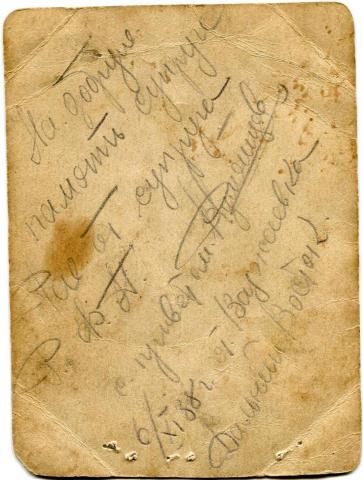 На добрую
память супруге
Рае от супруга
Р. Ф. А.
с приветом
6/XI 38 г. ст. Варваевка
Дальний Восток